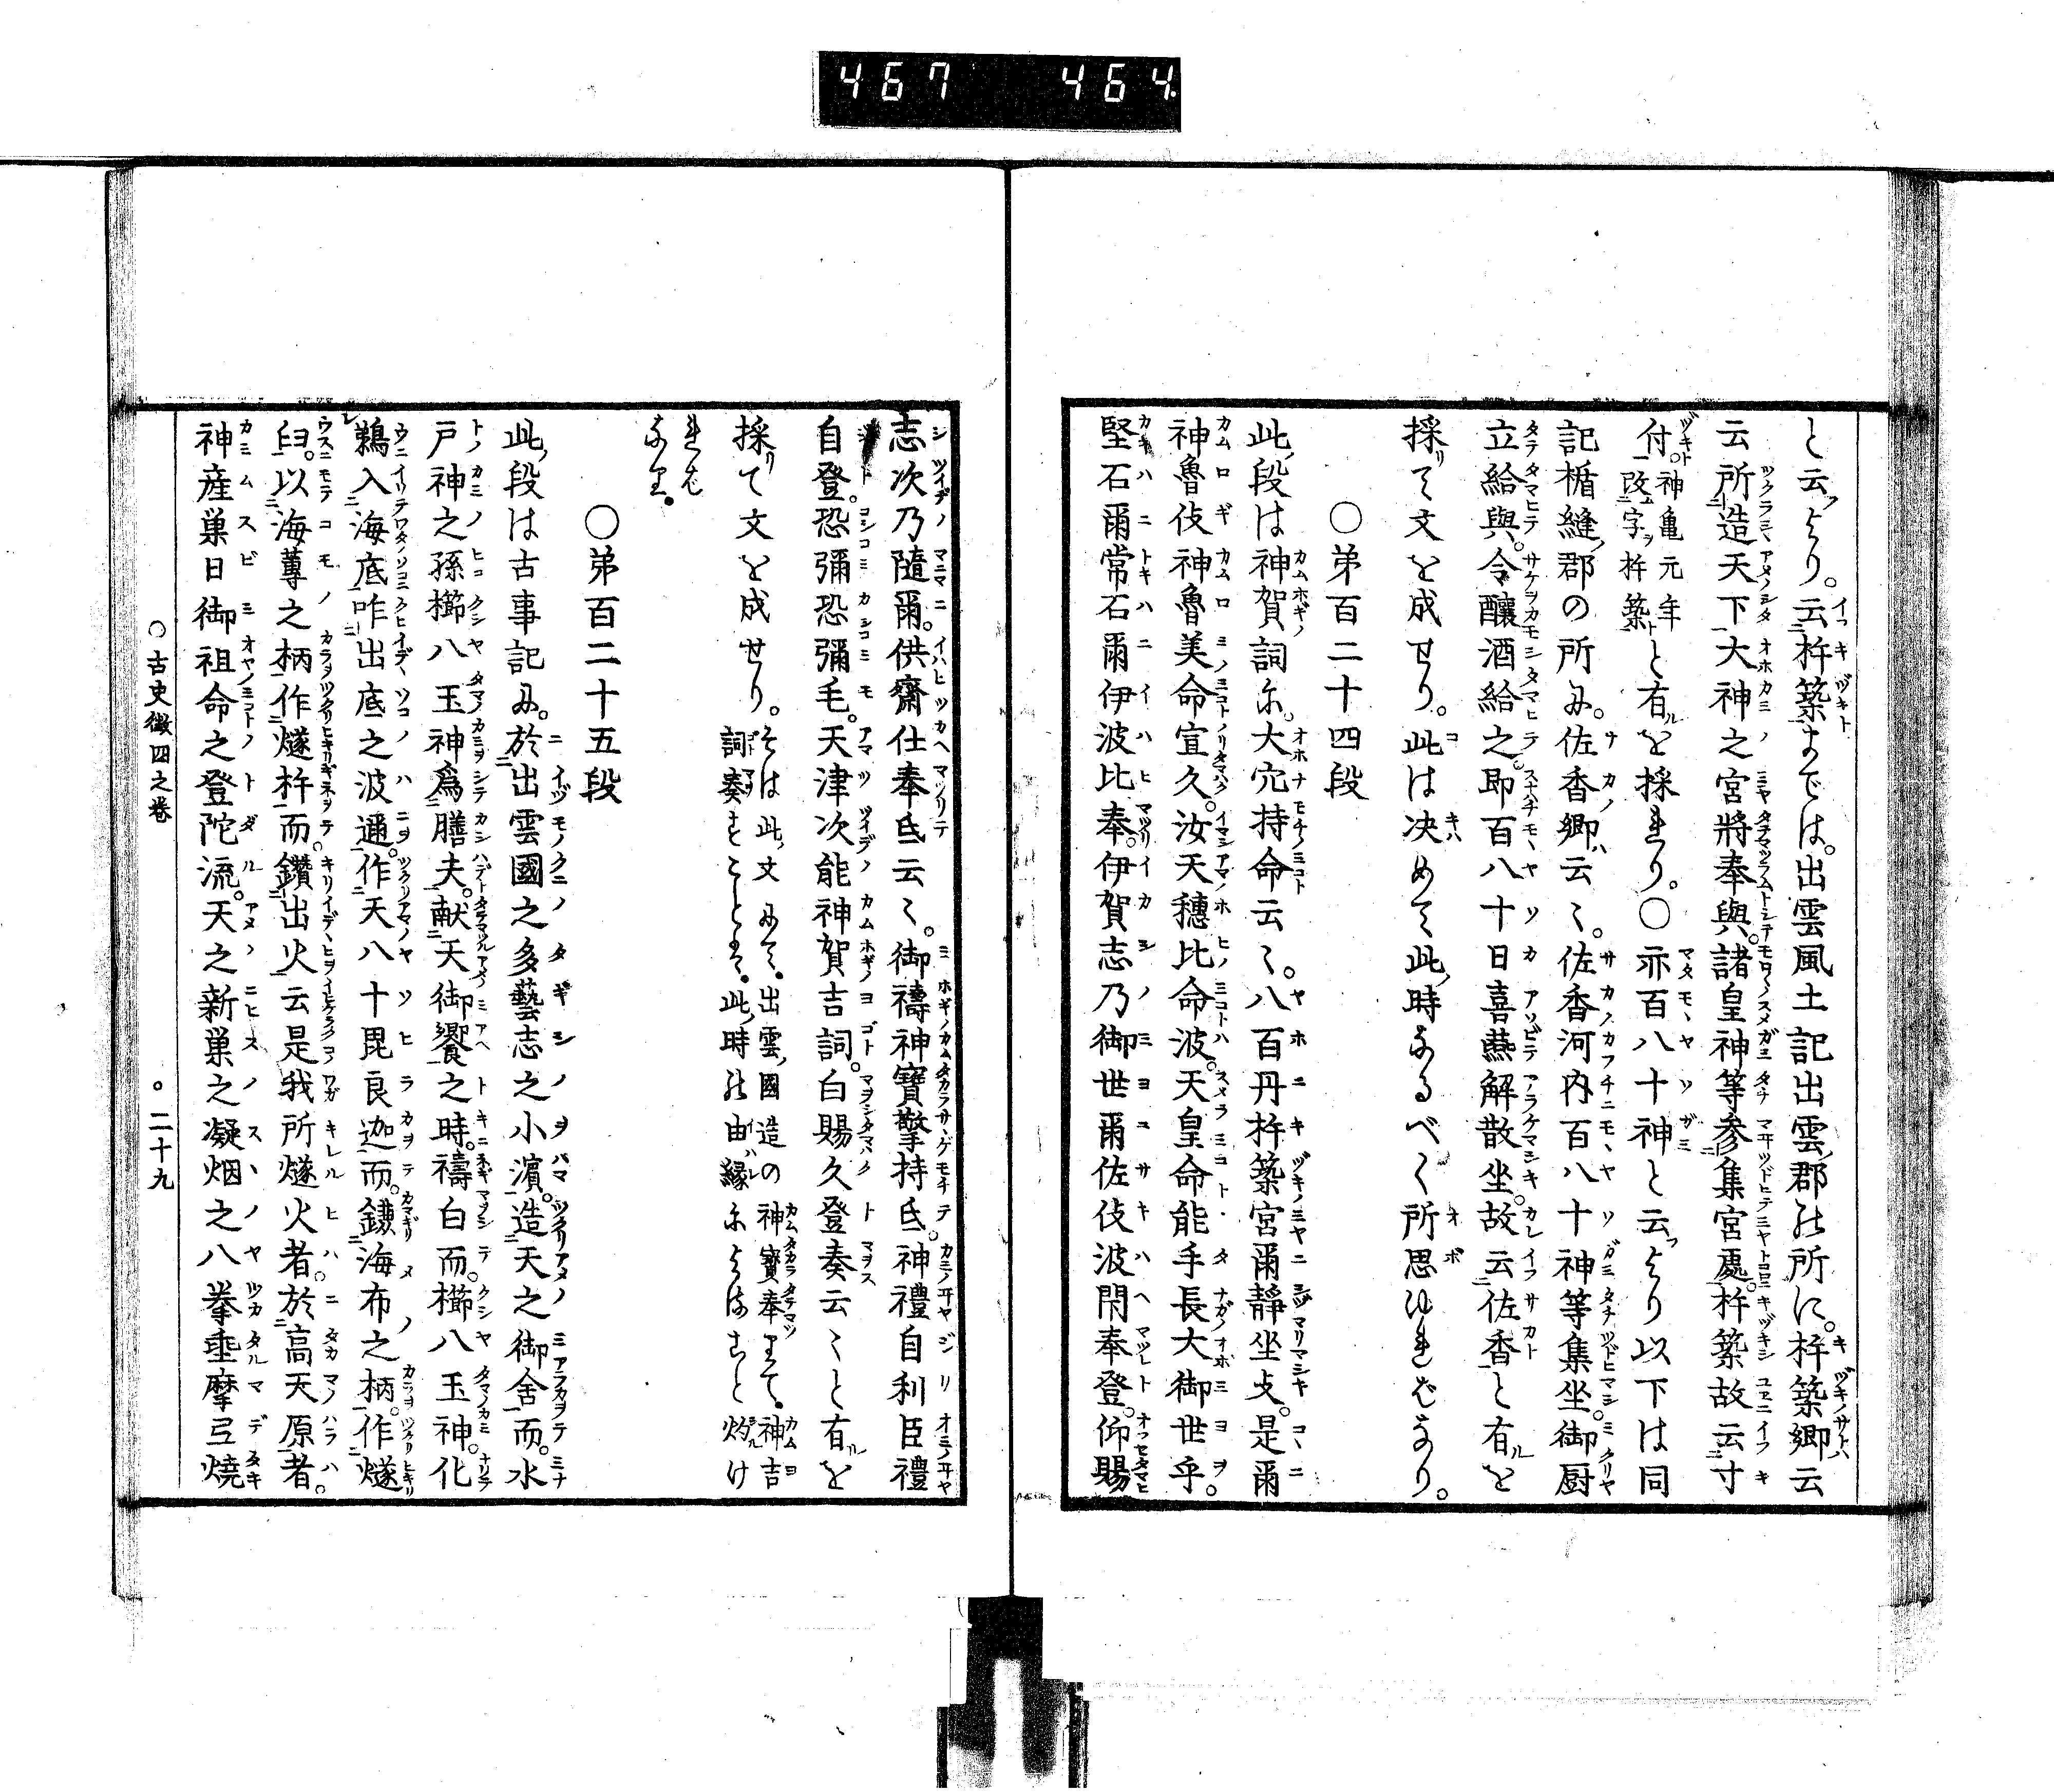 467 464
と云より。云杵築までは。出雲風土記出雲郡の所に。杵築郷云
云所造天下大神之宮將奉與。諸皇神等參集宮處。杵築故云寸
付。神亀元年改字杵築と有を採れり。〇亦百八十神と云より以下は同
記楯縫郡の所に。佐香郷云々。佐香河内百八十神等集坐。御厨
立給與。令釀酒給之。即百八十日喜燕解散坐。故云佐香と有を
採りて文を成せり。此は决めて此時なるべく所思ゆればなり。
〇第百二十四段
此段は神賀詞に。大穴持命云々。八百丹杵築宮爾靜坐支。是爾
神魯伎神魯美命宣久。汝天穗比命波。天皇命能手長大御世乎。
堅石爾常石爾伊波比奉。伊賀志乃御世爾佐伎波閇奉登。仰賜
志次乃隨爾。供齋仕奉氐云々。御禱神寶擎持氐。神禮自利臣禮
自登。恐彌恐彌毛。天津次能神賀吉詞。白賜久登奏云々と有を
採て文を成せり。そは此文にて。出雲國造の神寶奉りて。神吉詞奏すことは。此時の由縁によること灼け
れば
なり。
〇第百二十五段
此段は古事記に。於出雲國之多藝志之小濵。造天之御舍而。水
戸神之孫櫛八玉神爲膳夫。献天御饗之時。禱白而。櫛八玉神。化
鵜入海底。咋出底之波邇。作天八十毘良迦而。鎌海布之柄。作燧
臼。以海蓴之柄。作燧杵而。鑽出火云是我所燧火者。於高天原者。
神産巣日御祖命之登陀流。天之新巣之凝烟之八拳垂摩弖燒
〇古史徴四之巻 〇二十九